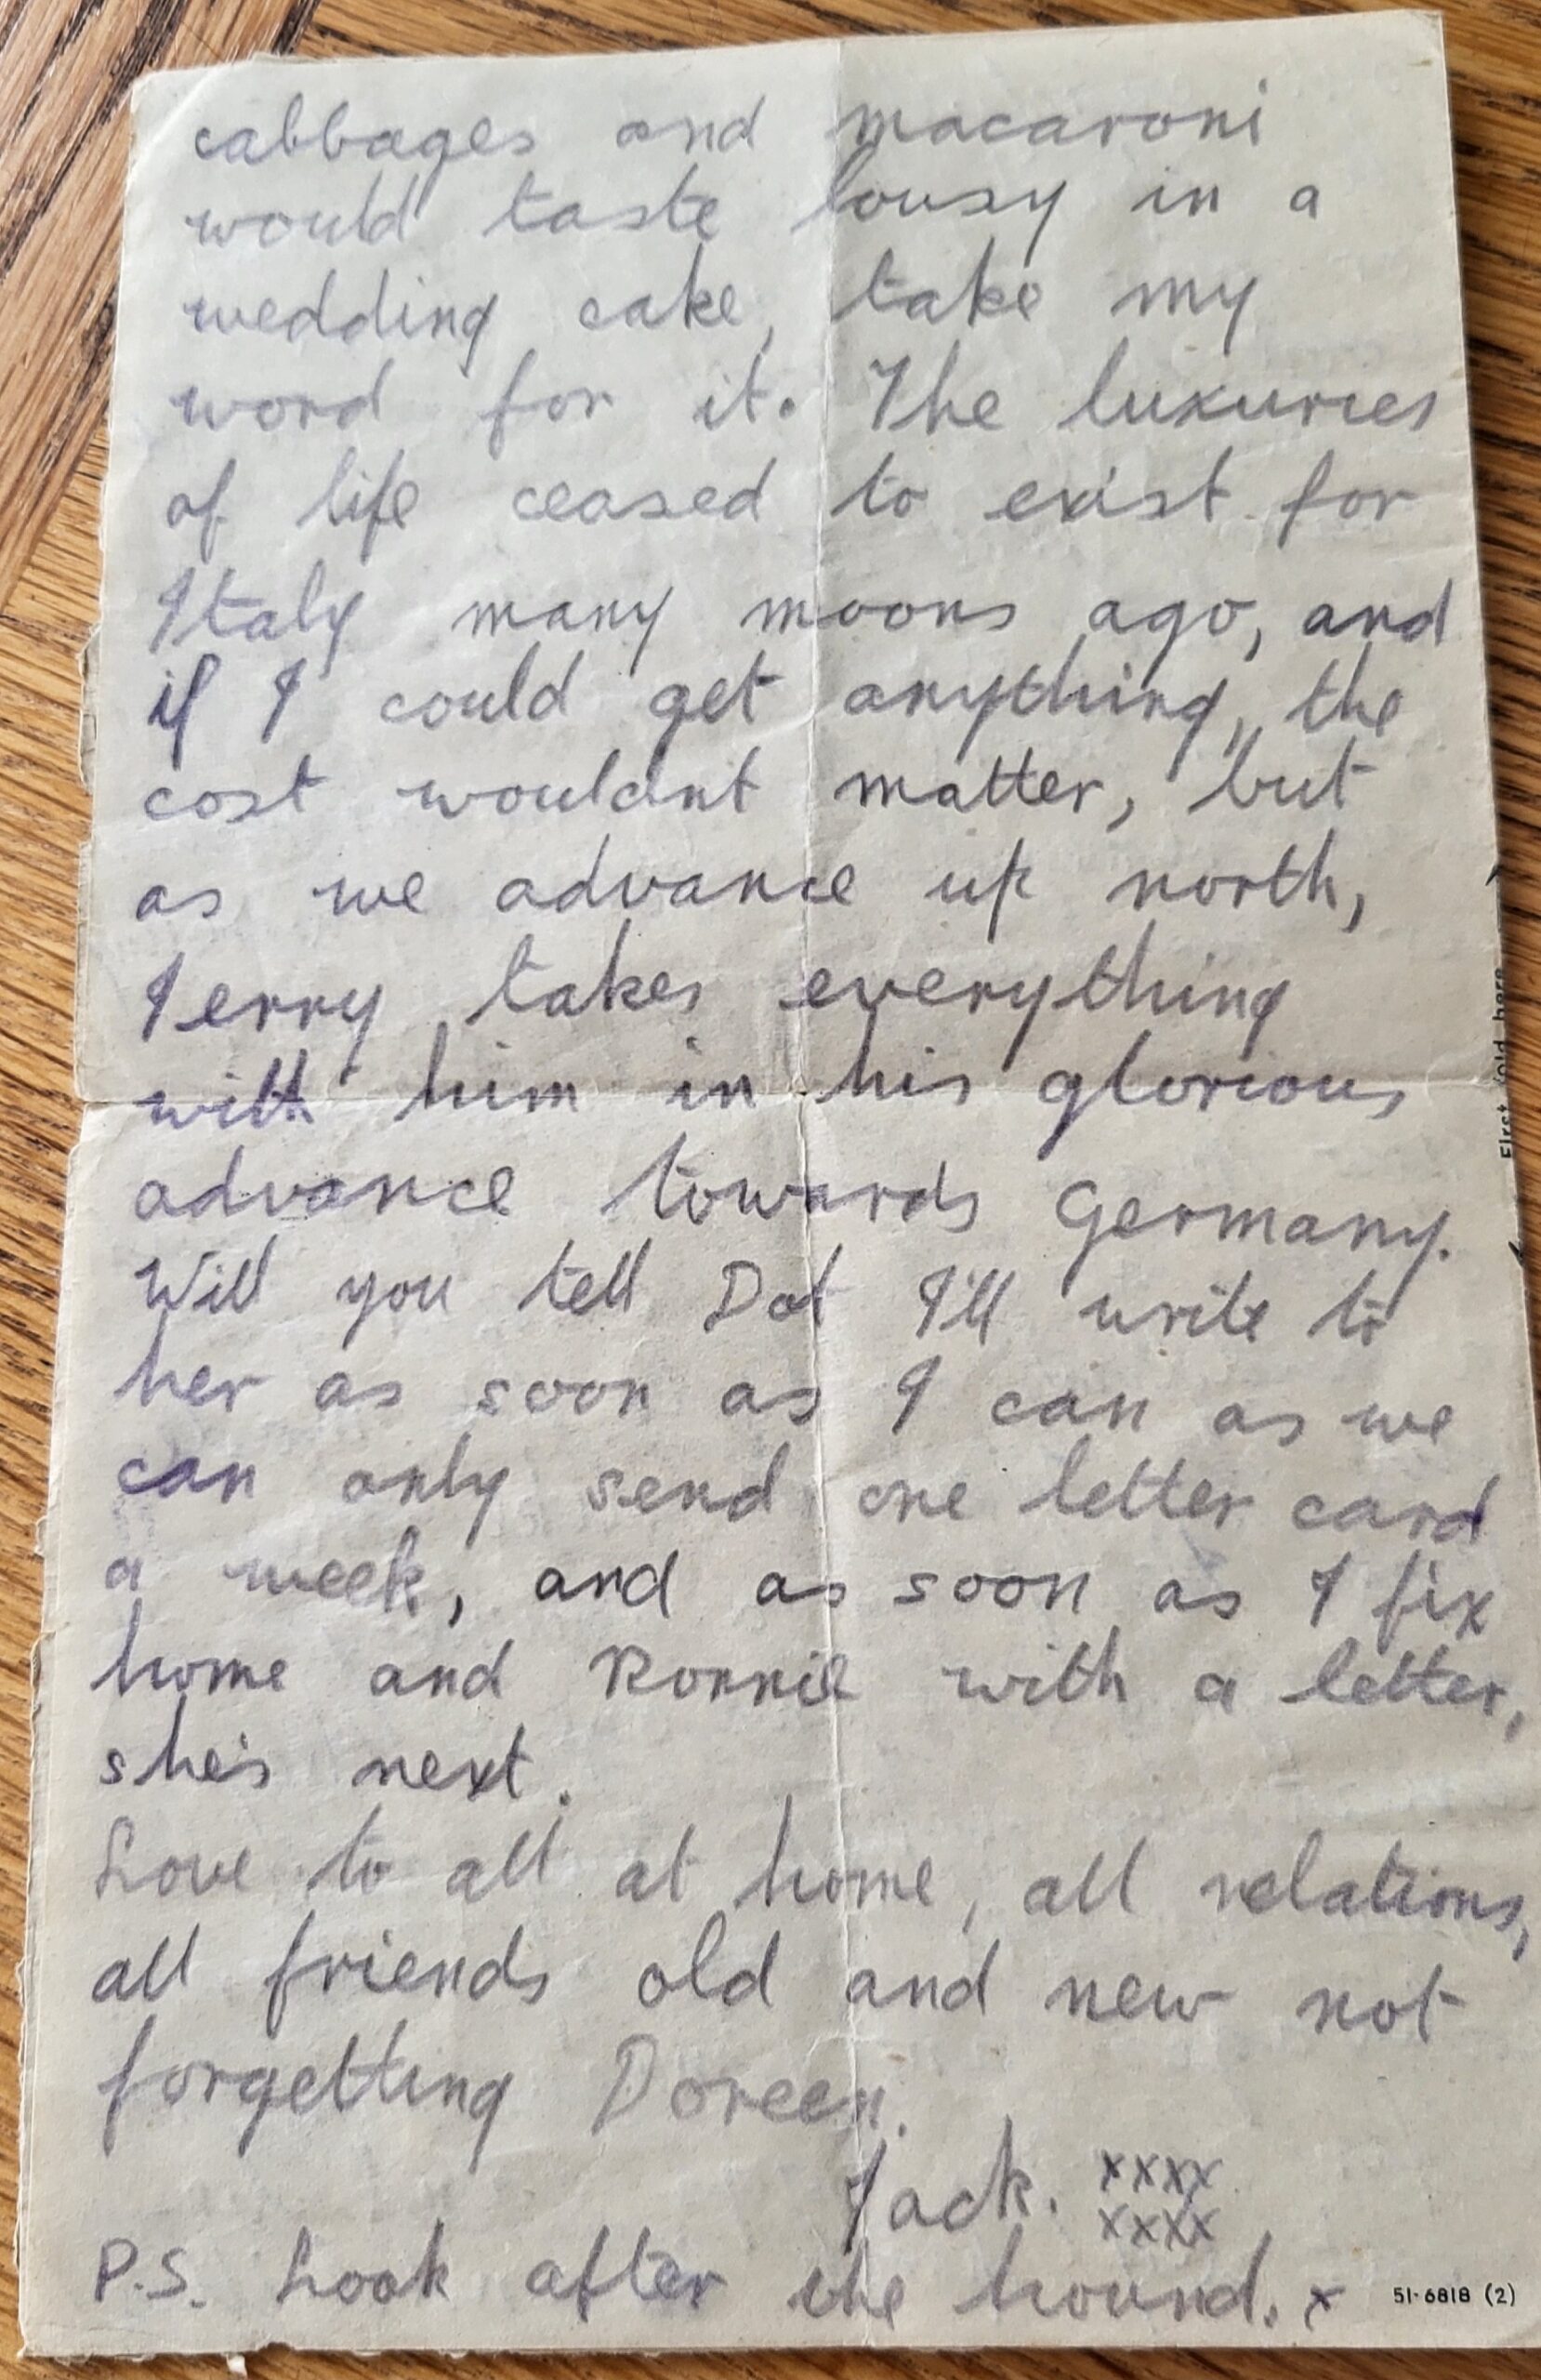 cabbages and macaroni
would taste lousy in a
wedding cake, take my
word for it. The luxuries
of life ceased to exist for
Italy many moons ago, and
if I could get anything, the
cost wouldnt matter, but
as we advance up north,
Jerry takes everything
with him in his glorious
advance towards Germany.
Will you tell Dot I'll write to
her as soon as I can as we
can only send one letter card
a week, and as soon as I fix
home and Ronnie with a letter,
she's next.
Love to all at home, all relations,
all friends old and new not
forgetting Doreen.
Jack. xxxx
xxxx
P.S. Look after the hound. x
51-6818 (2)
First fold here